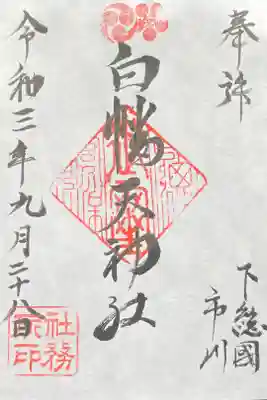 奉拝
下総國
市川
白幡天神社
令和三年九月二十八日
社務所印